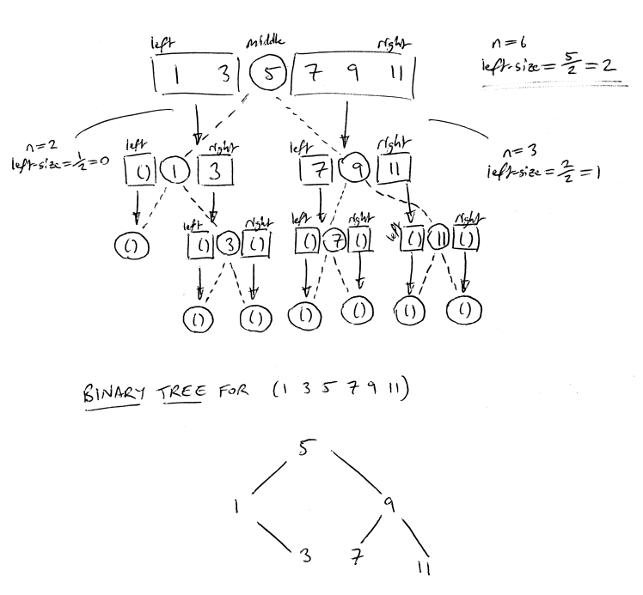 left middle right n=6
1 3 5 7 9 11 left-size = 5/2 = 2
n=2 left right left right n=3
left-size = 1/2 = 0 () 1 3 7 9 11 left-size = 2/2 = 1
left right left right left right
() () 3 () () 7 () () 11 ()
() () () () () ()
BINARY TREE FOR (1 3 5 7 9 11)
5
1 9
3 7 11